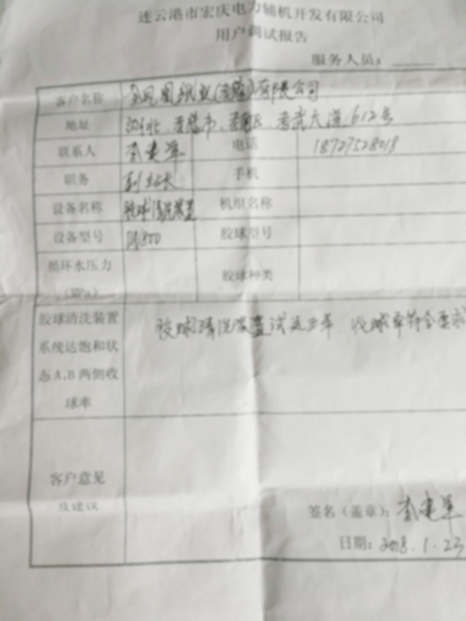 连云港市宏庆电力辅机开发有限公司
用户调试报告
服务人员：
客户名称 有限公司
地址 612号
联系人 李建军 电话 18727528019
职务 副站长 手机
设备名称 胶球清洗装置 机组名称
设备型号 胶球型号
循环水压力
（MPa） 胶球种类
胶球清洗装置
系统达饱和状
态A、B两侧收
球率
胶球清洗装置试运 收球率符合要求
客户意见
及建议
签名（盖章）：李建军
日期：2018.1.23